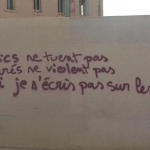 ics ne tuent pas
rés ne violent pas
i je n'écris pas sur les